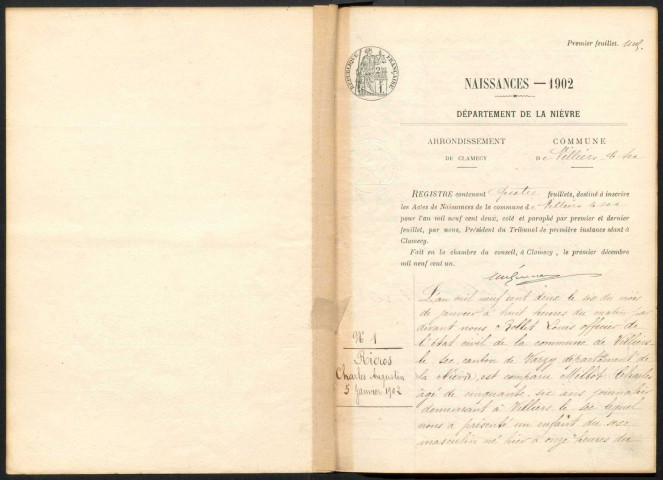 Premier feuillet.
RÉPUBLIQUE FRANÇAISE
NAISSANCES — 1902
DÉPARTEMENT DE LA NIÈVRE
ARRONDISSEMENT
DE CLAMECY
COMMUNE
D e Villiers le sec
REGISTRE contenant quatre feuillets, destiné à inscrire
les Actes de Naissances de la commune d e Villiers le sec
pour l'an mil neuf cent deux, coté et paraphé par premier et dernier
feuillet, par nous, Président du Tribunal de première instance séant à
Clamecy.
Fait en la chambre du conseil, à Clamecy, le premier décembre
mil neuf cent un.
N° 1
Rieros
Charles Augustin
5 Janvier 1902
L'an mil neuf cent deux le six du mois
de janvier à huit heures du matin par
devant nous Rollet Louis officier de
l'état civil de la commune de Villiers
le sec canton de Varzy département de
la Nièvre, est comparu Millot Charles
âgé de cinquante six ans journalier
demeurant à Villiers le sec lequel
nous a présenté un enfant du sexe
masculin né hier à onze heures du